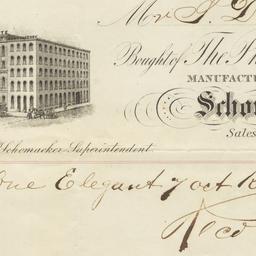 Mr J. D
Bought of The Ph
MANUFACTU
Schom
Sales
Schomacker Superintendent.
One Elegant 7 oct R
Rec